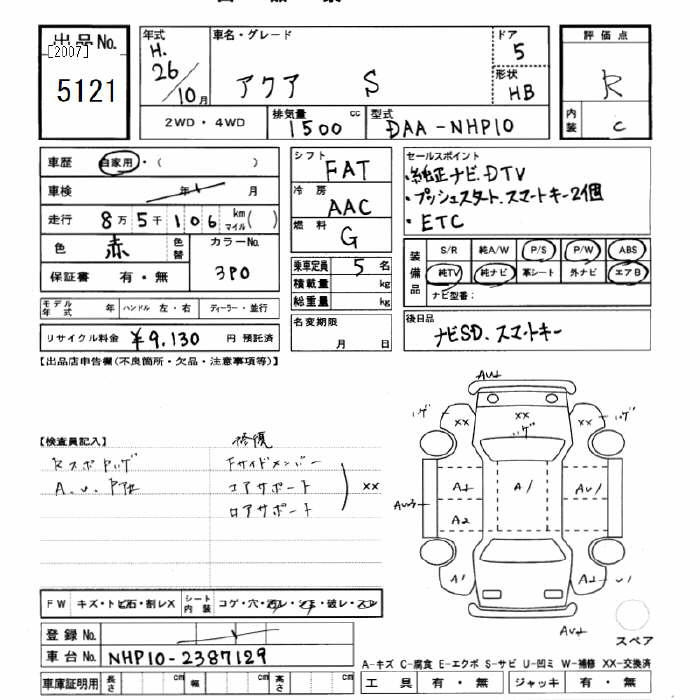 出品No.
[2007]
5121
年式
H.
26/10月
車名・グレード
アクア S
ドア
5
形状
HB
評価点
R
内装
C
2WD・4WD
排気量
1500 cc
型式
DAA-NHP10
車歴 自家用・( )
車検 年 月
走行 8万5千106 km マイル( )
色 赤 色替
カラーNo.
3P0
保証書 有・無
モデル年式 年 ハンドル 左・右 ディーラー・並行
リサイクル料金 ¥9,130 円 預託済
シフト
FAT
冷房
AAC
燃料
G
乗車定員 5 名
積載量 kg
総重量 kg
名変期限
月 日
セールスポイント
・純正ナビ.DTV
・プッシュスタート.スマートキー2個
・ETC
装備品
S/R 純A/W P/S P/W ABS
純TV 純ナビ 革シート 外ナビ エアB
ナビ型番:
後日品
ナビSD.スマートキー
【出品店申告欄(不良箇所・欠品・注意事項等)】
【検査員記入】
修復
Fサイドメンバー
コアサポート
ロアサポート
XX
A.U.
XX
XX
XX
A1
A2
A1
FW キズ・トビ石・割レX シート内装 コゲ・穴・
登録No.
車台No. NHP10-2387129
車庫証明用 長さ cm 幅 cm 高さ cm
スペア
A-キズ C-腐食 E-エクボ S-サビ U-凹ミ W-補修 XX-交換済
工具 有・無 ジャッキ 有・無